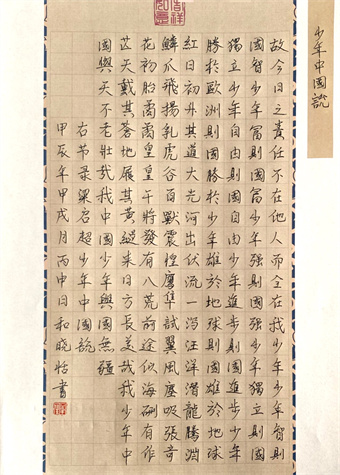 少年中國說
吉祥如意
故今日之責任不在他人而全在我少年少年智則
國智少年富則國富少年强則國强少年獨立則國
獨立少年自由則國自由少年進步則國進步少年
勝於歐洲則國勝於少年雄於地球則國雄於地球
紅日初升其道大光河出伏流一瀉汪洋潛龍騰淵
鱗爪飛揚乳虎谷百獸震惶鷹隼試翼風塵吸張奇
花初胎矞矞皇皇干將發有八荒前途似海硎有作
芒天戴其蒼地履其黄縱来日方長美哉我少年中
國與天不老壯哉我中國少年與國無疆
右节录梁启超少年中國說
甲辰年甲戌月丙申日和晓怡書